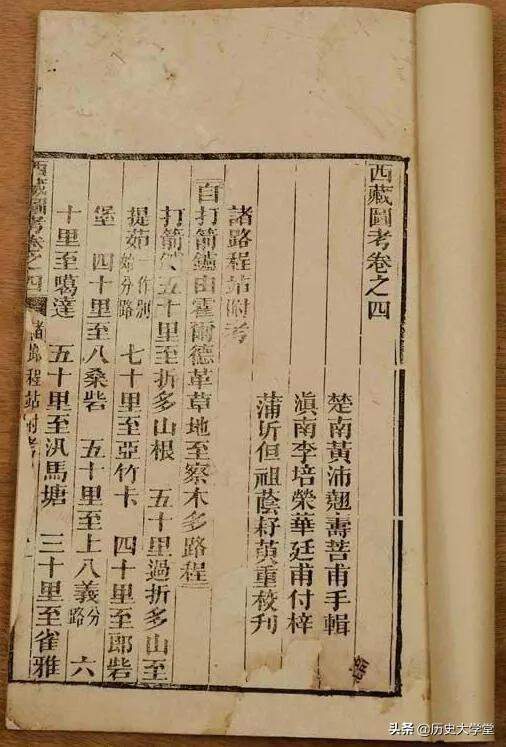 西藏圖考卷之四
楚南黃沛翹壽菩甫手輯
滇南李培榮華廷甫付梓
蒲圻但祖蔭籽萸重校刋
諸路程站附考
自打箭鑪由霍爾德革草地至察木多路程
打箭鑪五十里至折多山根 五十里過折多山至
提茹一作別始分路 七十里至亞竹卡 四十里至郎砦
堡 四十里至八桑砦 五十里至上八義分路 六
十里至噶達 五十里至汎馬塘 三十里至雀雅
西藏圖考卷之四 諸路程站附考 一
头条 @历史大学堂